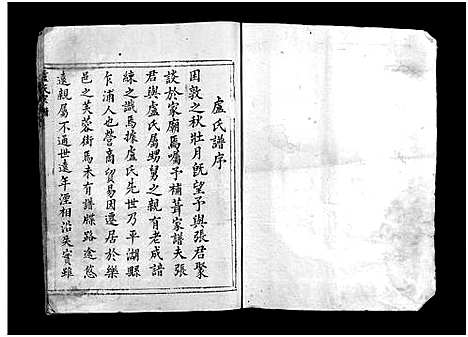 盧氏譜序
困敦之秋壮月既望予與張君聚
談於家廟焉囑予補葺家譜夫張
君與盧氏属甥舅之親有老成諳
練之識焉據盧氏先世乃平湖縣
乍浦人也营商貿易因遷居於樂
邑之芙蓉街焉未有譜牒路途悠
遠親属不通世遠年湮相沿失實雖